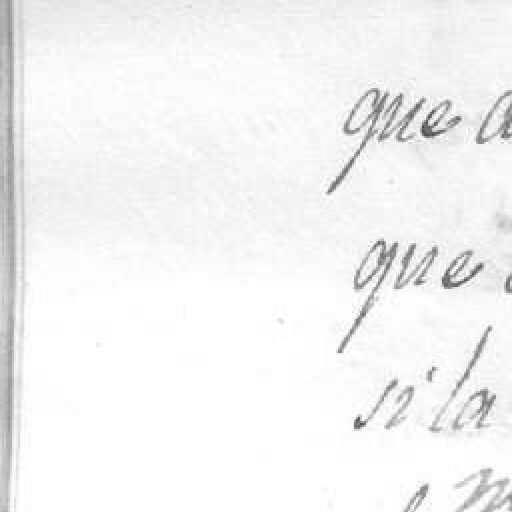 que
que
si la